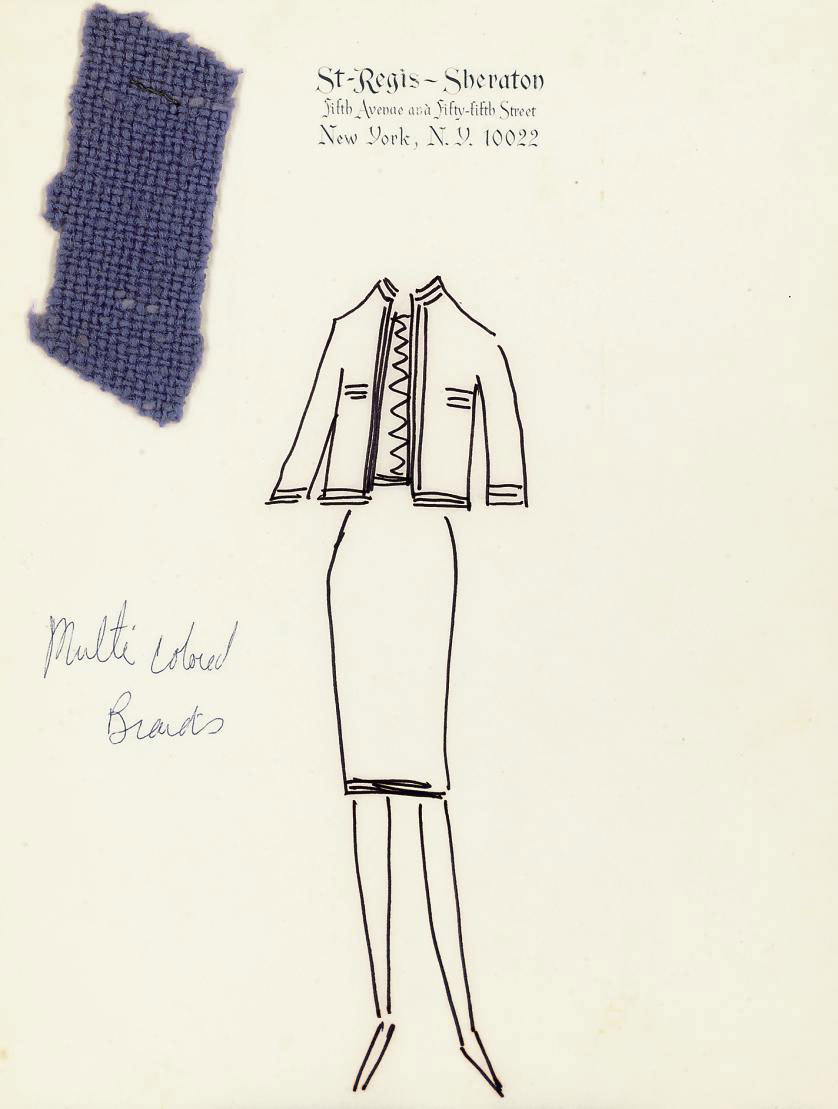 St-Regis-Sheraton
Fifth Avenue and Fifty-fifth Street
New York, N.Y. 10022
Multi colored
Braids